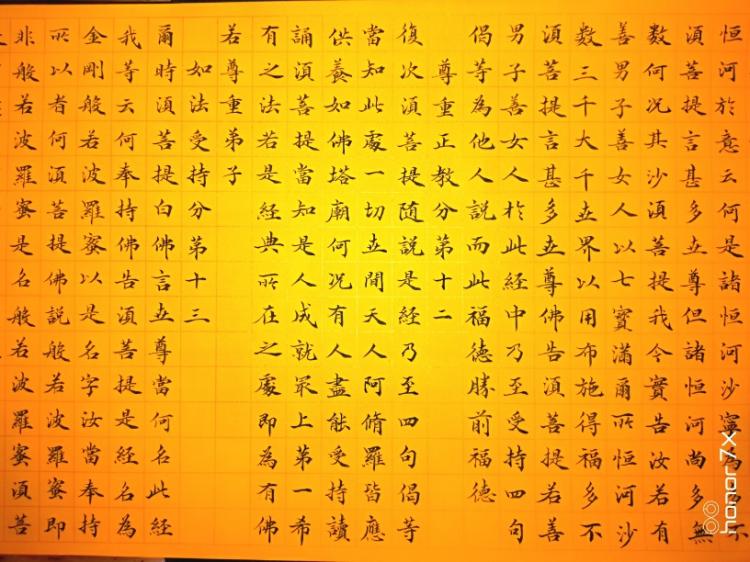 恒河於意云何是諸恒河沙寧為多不
須菩提言甚多世尊但諸恒河尚多無
數何況其沙須菩提我今實告汝若有
善男子善女人以七寳滿爾所恒河沙
数三千大千世界以用布施得福多不
須菩提言甚多世尊佛告須菩提若善
男子善女人於此經中乃至受持四句
偈等為他人説而此福德勝前福德
尊重正教分第十二
復次須菩提随說是經乃至四句偈等
當知此處一切世間天人阿脩羅皆應
供養如佛塔廟何况有人盡能受持讀
誦須菩提當知是人成就最上第一希
有之法若是經典所在之處即為有佛
若尊重弟子
如法受持分第十三
爾時須菩提白佛言世尊當何名此經
我等云何奉持佛告須菩提是經名為
金剛般若波羅蜜以是名字汝當奉持
所以者何須菩提佛説般若波羅蜜即
非般若波羅蜜是名般若波羅蜜須菩
honor 7x